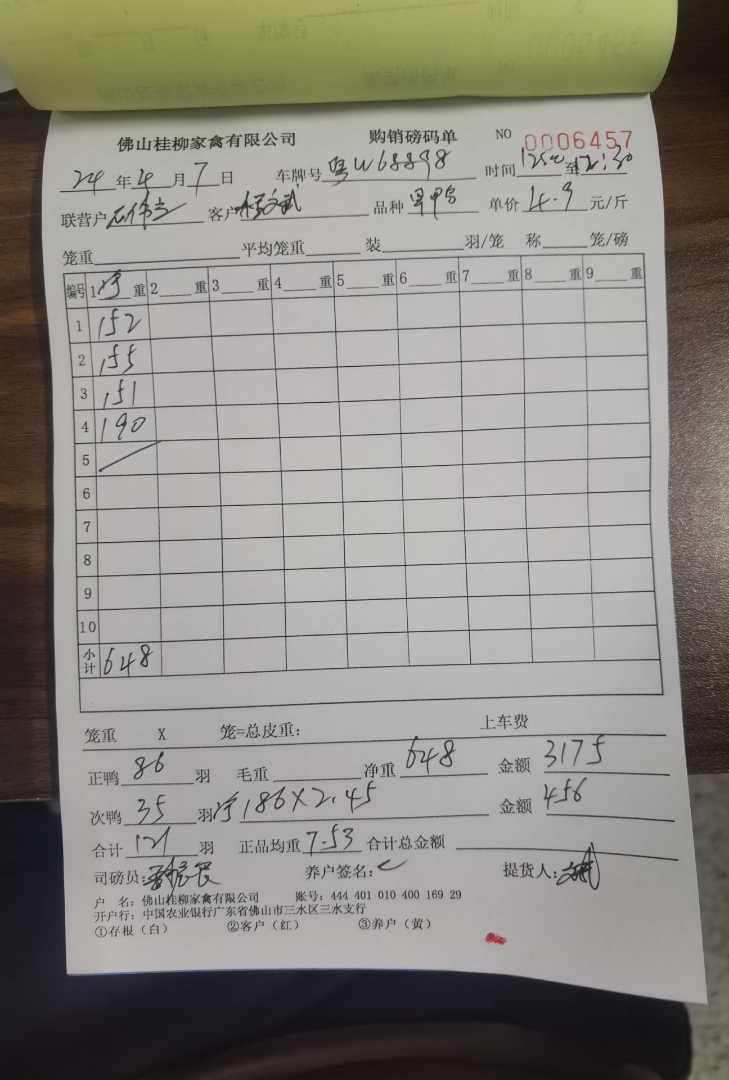 佛山桂柳家禽有限公司 购销磅码单 NO 0006457
24年4月7日 车牌号 粤W68898 时间 至12:30
联营户 客户 品种 单价4.9元/斤
笼重 平均笼重 装 羽/笼 称 笼/磅
编号 1净重 2 重 3 重 4 重 5 重 6 重 7 重 8 重 9 重
1 152
2 155
3 151
4 190
5
6
7
8
9
10
小计 648
笼重 X 笼=总皮重: 上车费
正鸭 86 羽 毛重 净重 648 金额 3175
次鸭 35 羽 净186X2.45 金额 456
合计 121 羽 正品均重 7.53 合计总金额
司磅员: 养户签名: 提货人:
户 名: 佛山桂柳家禽有限公司 账号: 444 401 010 400 169 29
开户行: 中国农业银行广东省佛山市三水区三水支行
①存根(白) ②客户(红) ③养户(黄)